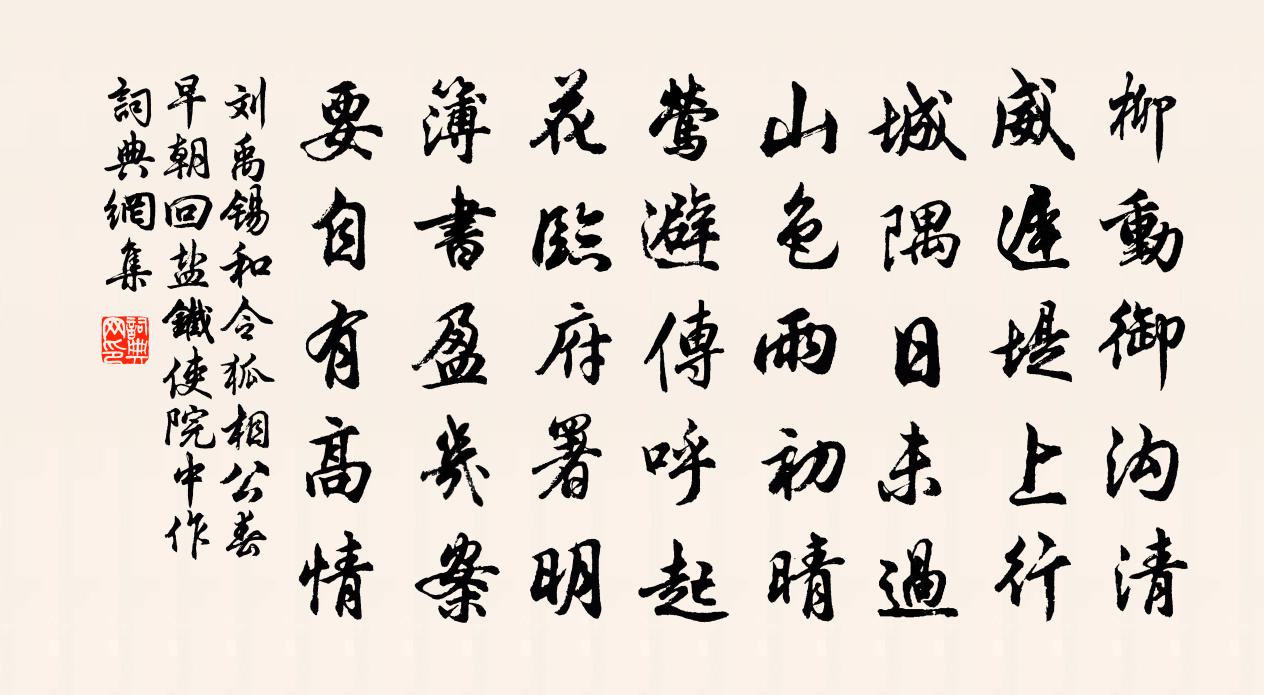 柳動御沟清
威遲堤上行
城隅日未過
山色雨初晴
鶯避傳呼起
花臨府署明
簿書盈幾案
要自有高情
刘禹锡和令狐相公春
早朝回盐鐵使院中作
詞典網集
詞典网印